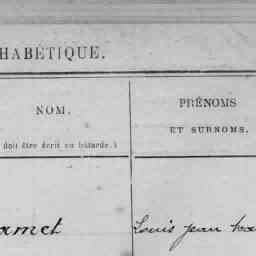 HABÉTIQUE.
NOM.
PRÉNOMS
ET SURNOMS.
doit être écrit en bâtarde.)
amet
Louis jean